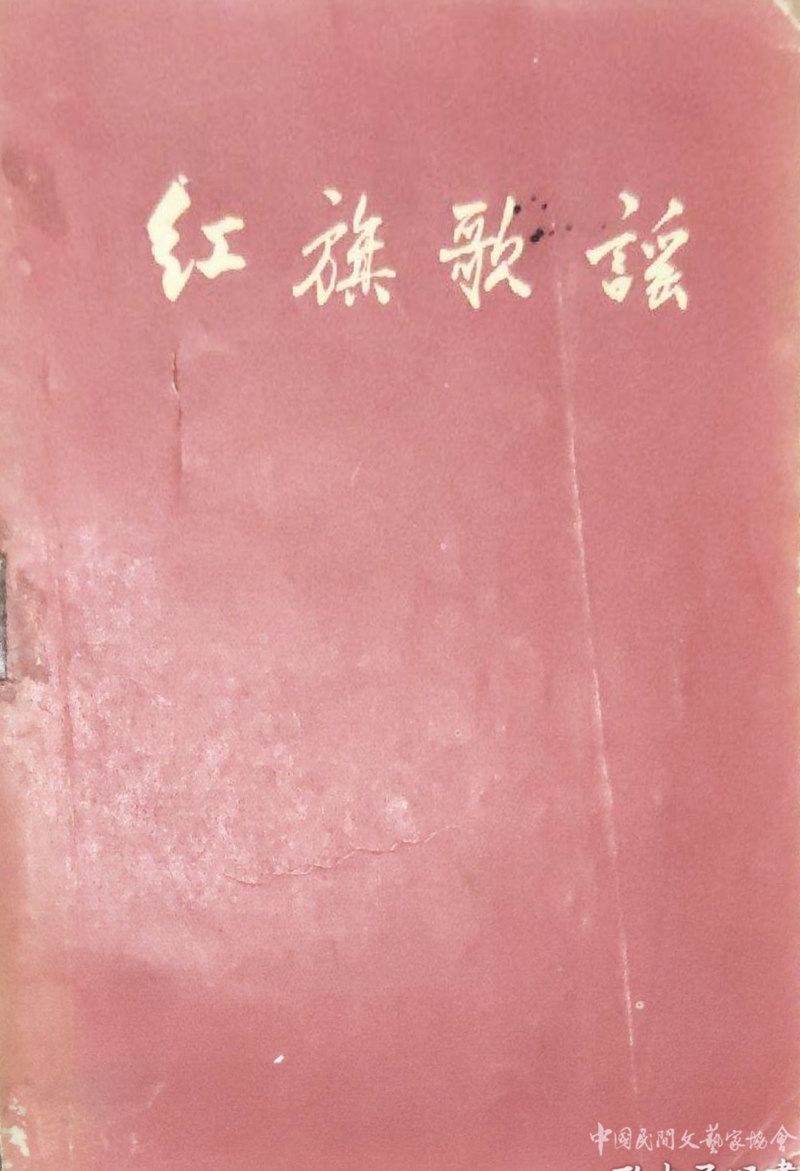 红旗歌謡
中國民間文藝家協會